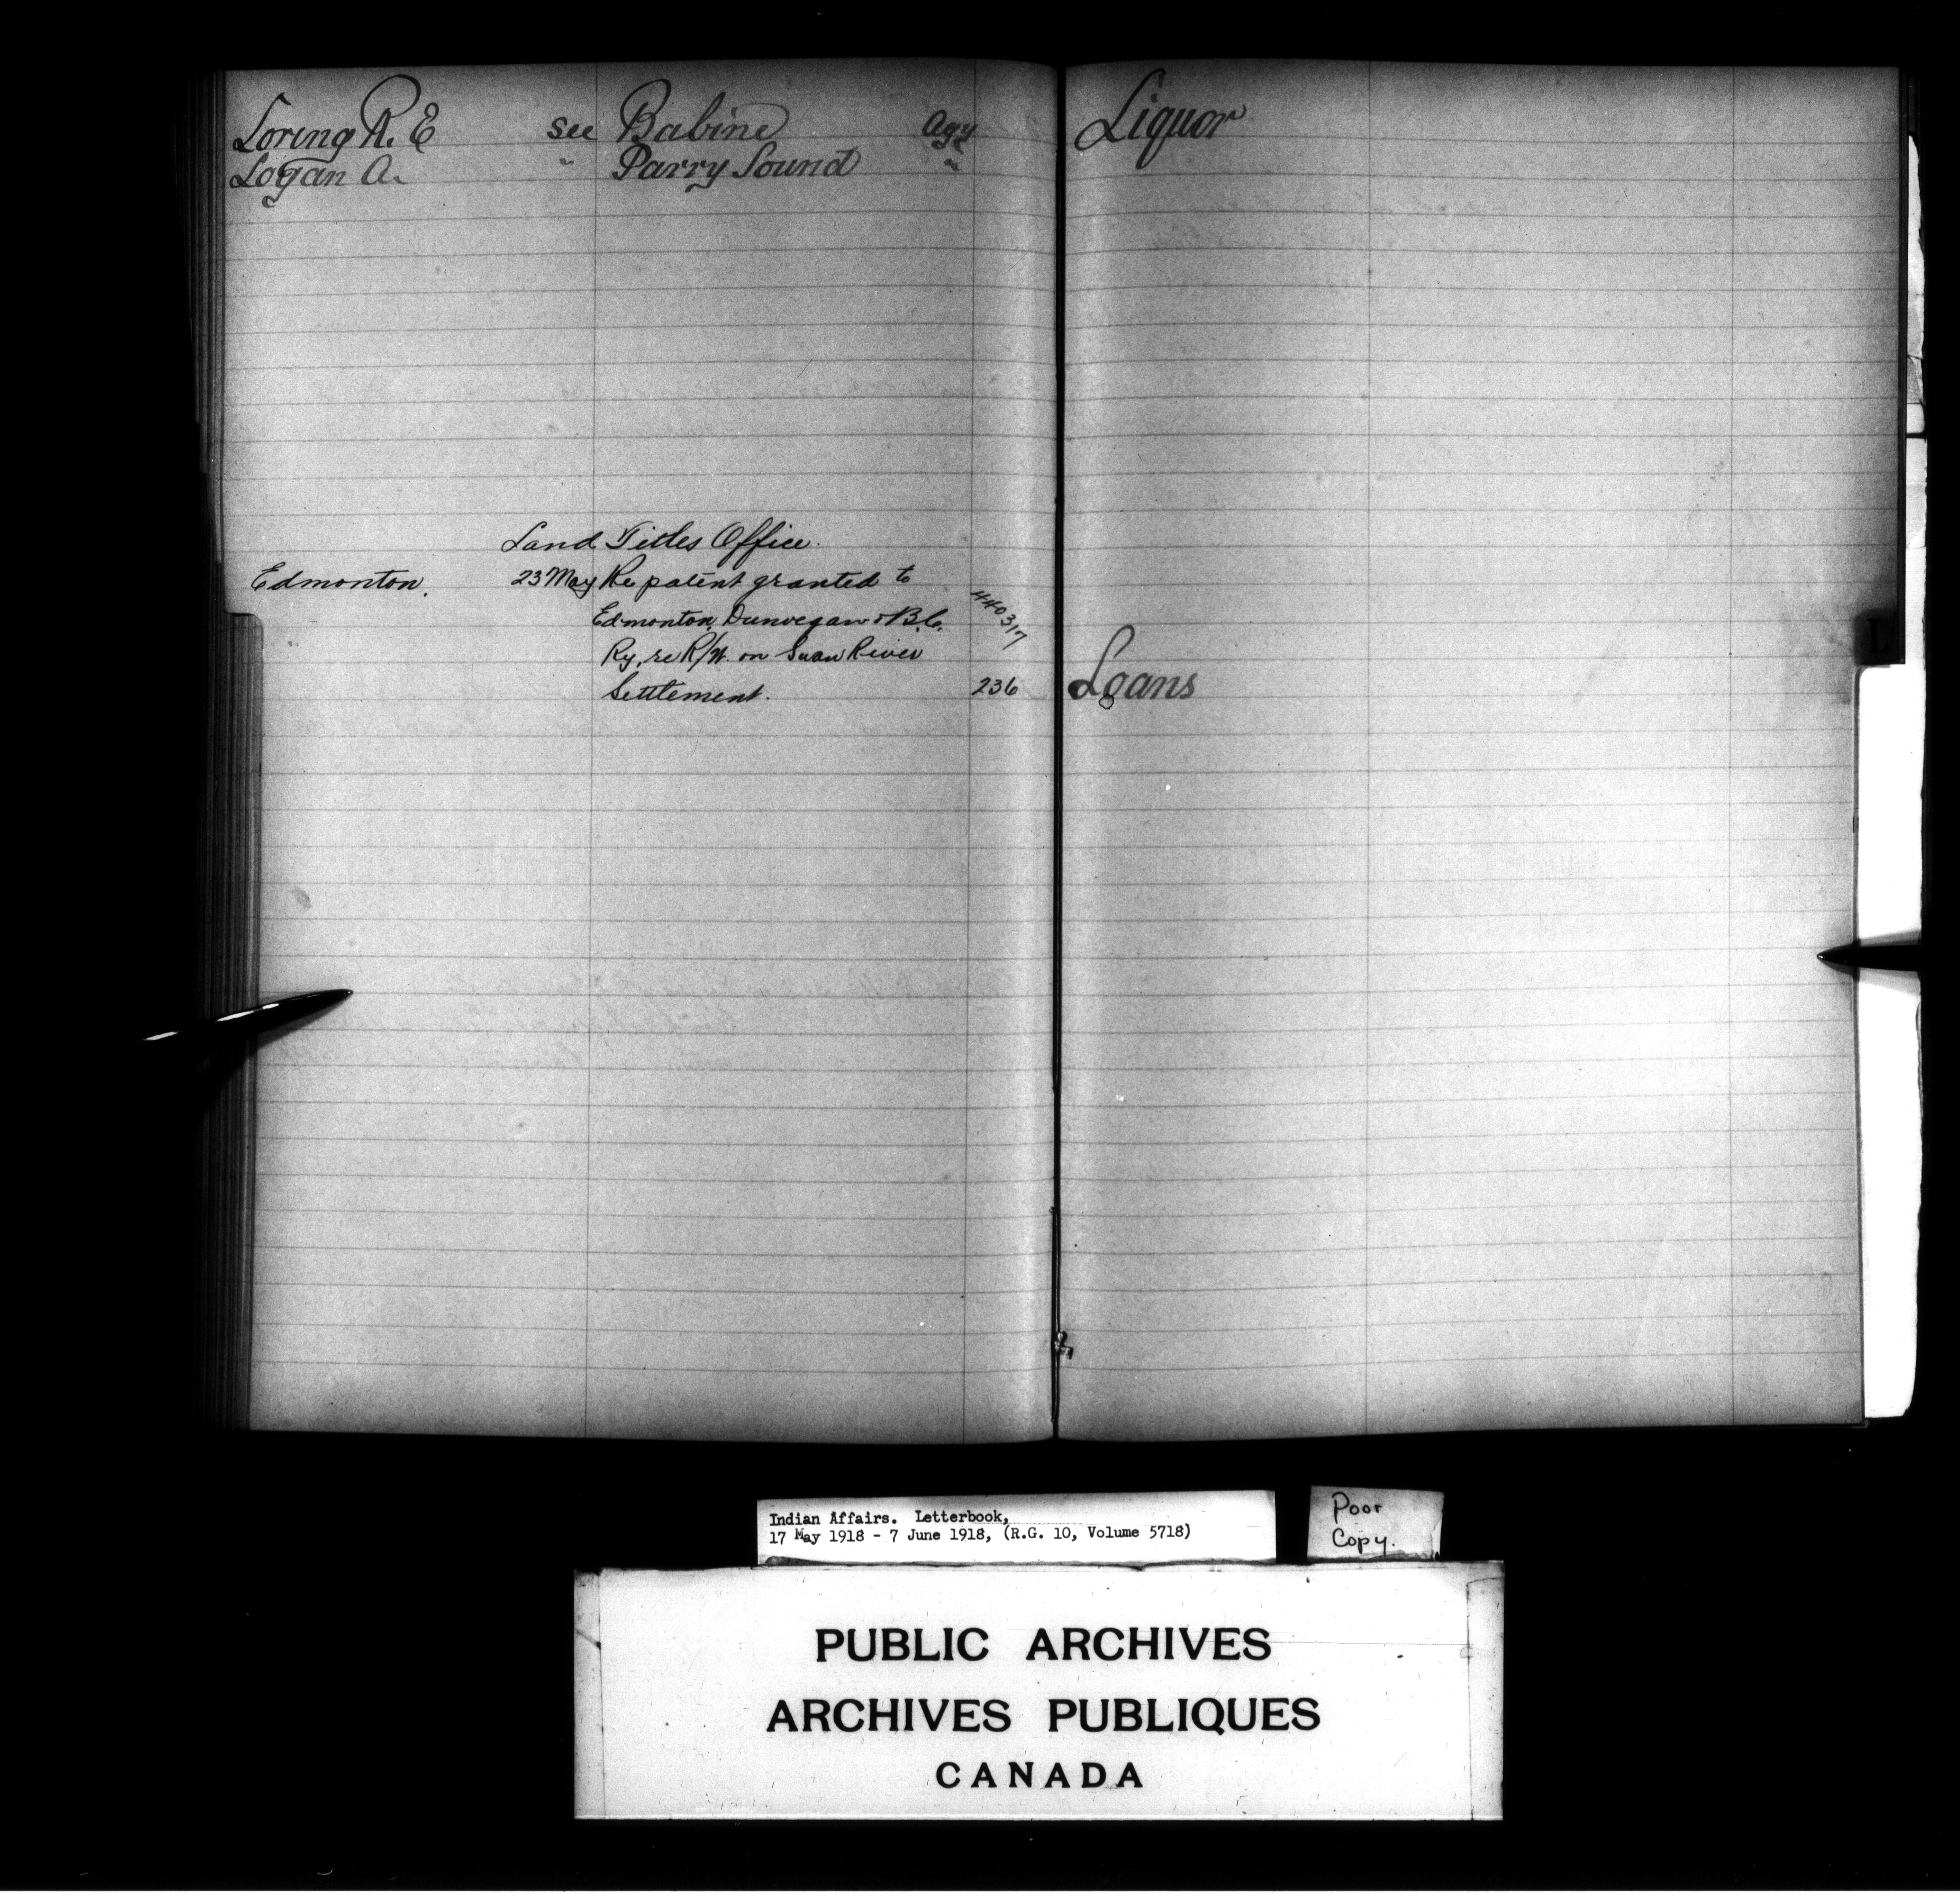 Loring R. E see Babine Agy
Logan A. " Parry Sound "
Land Titles Office.
Edmonton. 23 May Re patent granted to
Edmonton, Dunvegan & B.C. 440317
Ry, re R/W. on Swan River
Settlement. 236
Liquor
Loans
L
Indian Affairs. Letterbook,
17 May 1918 - 7 June 1918, (R.G. 10, Volume 5718)
Poor
Copy.
PUBLIC ARCHIVES
ARCHIVES PUBLIQUES
CANADA